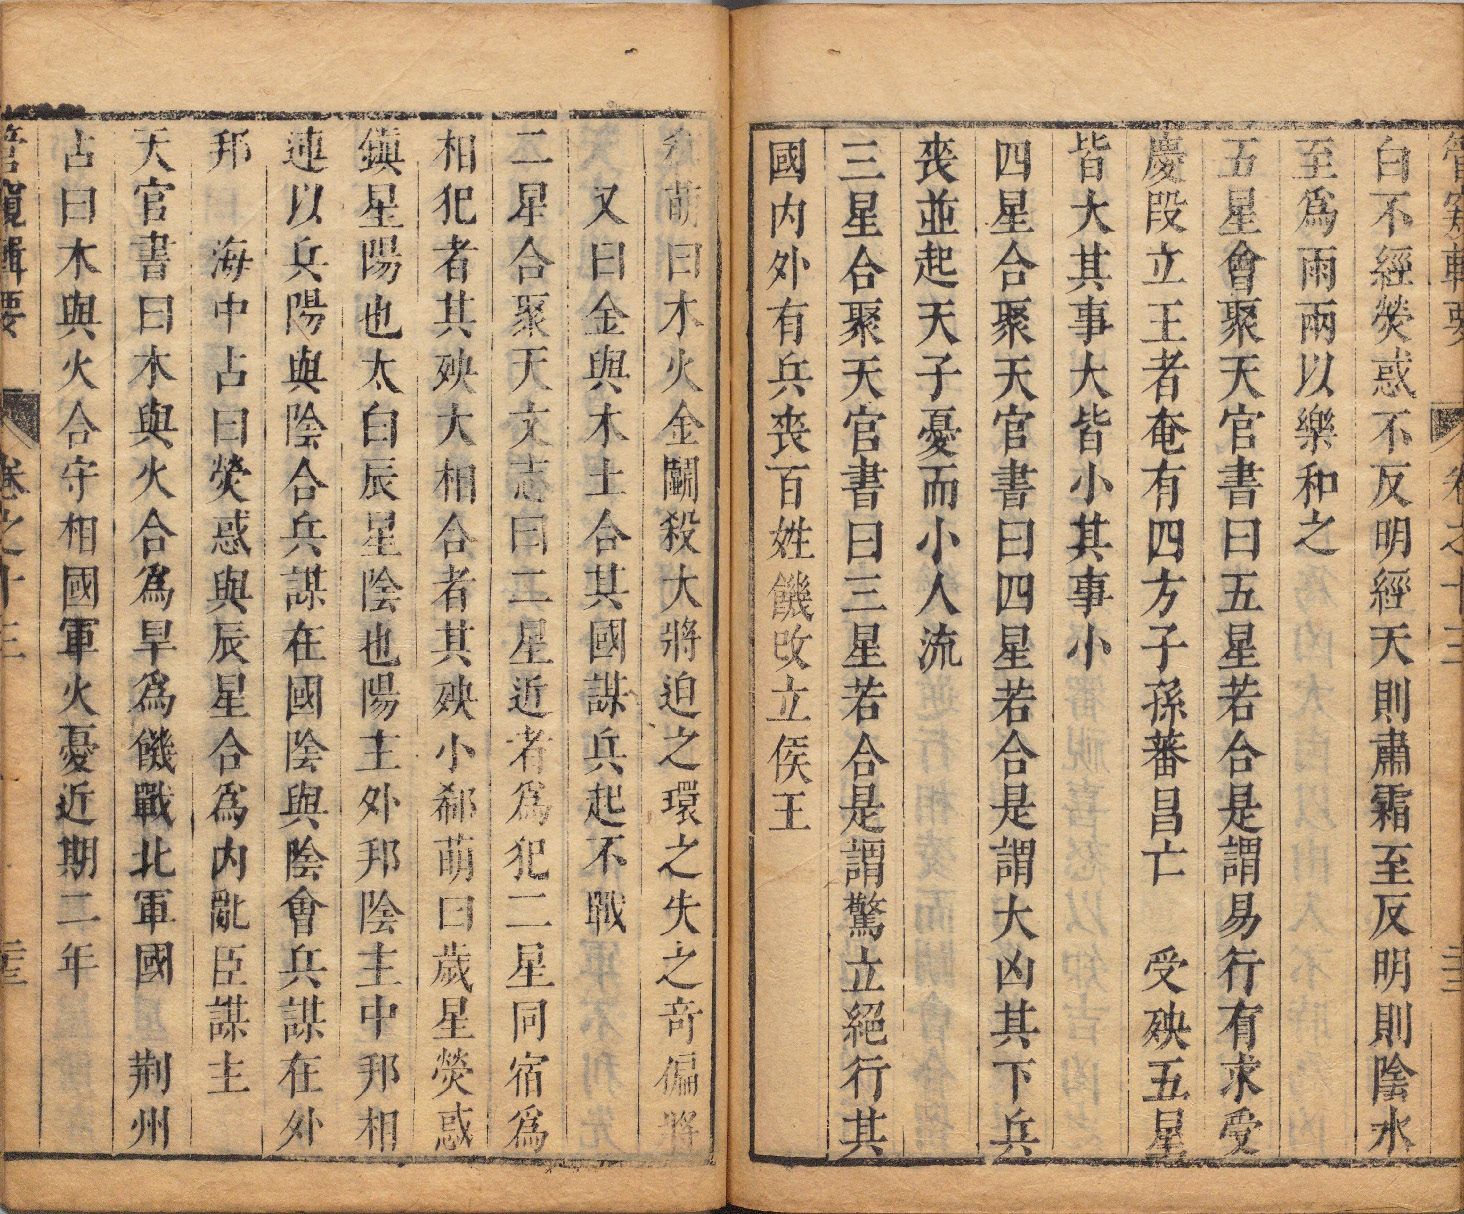 管窺輯要 卷之十三
白不經熒惑不反明經天則肅霜至反明則陰水
至爲雨兩以樂和之
五星會聚天官書曰五星若合是謂易行有求受
慶段立王者奄有四方子孫蕃昌亡 受殃五星
皆大其事大皆小其事小
四星合聚天官書曰四星若合是謂大凶其下兵
喪並起天子憂而小人流
三星合聚天官書曰三星若合是謂驚立絕行其
國內外有兵喪百姓饑改立侯王
萌曰木火金鬭殺大將迫之環之失之奇偏將
又曰金與木土合其國謀兵起不戰
二星合聚天文志曰二星近者爲犯二星同宿爲
相犯者其殃大相合者其殃小郗萌曰歲星熒惑
鎮星陽也太白辰星陰也陽主外邦陰主中邦相
連以兵陽與陰合兵謀在國陰與陰會兵謀在外
邦 海中占曰熒惑與辰星合爲內亂臣謀主
天官書曰木與火合爲旱爲饑戰北軍國 荆州
占曰木與火合守相國軍火憂近期二年
管窺輯要 卷之十三